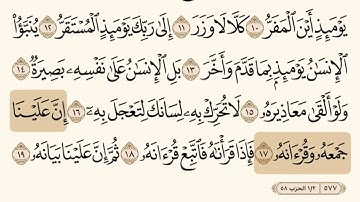 يَوْمَئِذٍ أَيْنَ ٱلْمَفَرُّ ١٠ كَلَّا لَا وَزَرَ ١١ إِلَىٰ رَبِّكَ يَوْمَئِذٍ ٱلْمُسْتَقَرُّ ١٢ يُنَبَّؤُا۟
ٱلْإِنسَٰنُ يَوْمَئِذٍۭ بِمَا قَدَّمَ وَأَخَّرَ ١٣ بَلِ ٱلْإِنسَٰنُ عَلَىٰ نَفْسِهِۦ بَصِيرَةٌ ١٤
وَلَوْ أَلْقَىٰ مَعَاذِيرَهُۥ ١٥ لَا تُحَرِّكْ بِهِۦ لِسَانَكَ لِتَعْجَلَ بِهِۦٓ ١٦ إِنَّ عَلَيْنَا
جَمْعَهُۥ وَقُرْءَانَهُۥ ١٧ فَإِذَا قَرَأْنَٰهُ فَٱتَّبِعْ قُرْءَانَهُۥ ١٨ ثُمَّ إِنَّ عَلَيْنَا بَيَانَهُۥ ١٩
٥٧٧ ١/٢ الحزب ٥٨